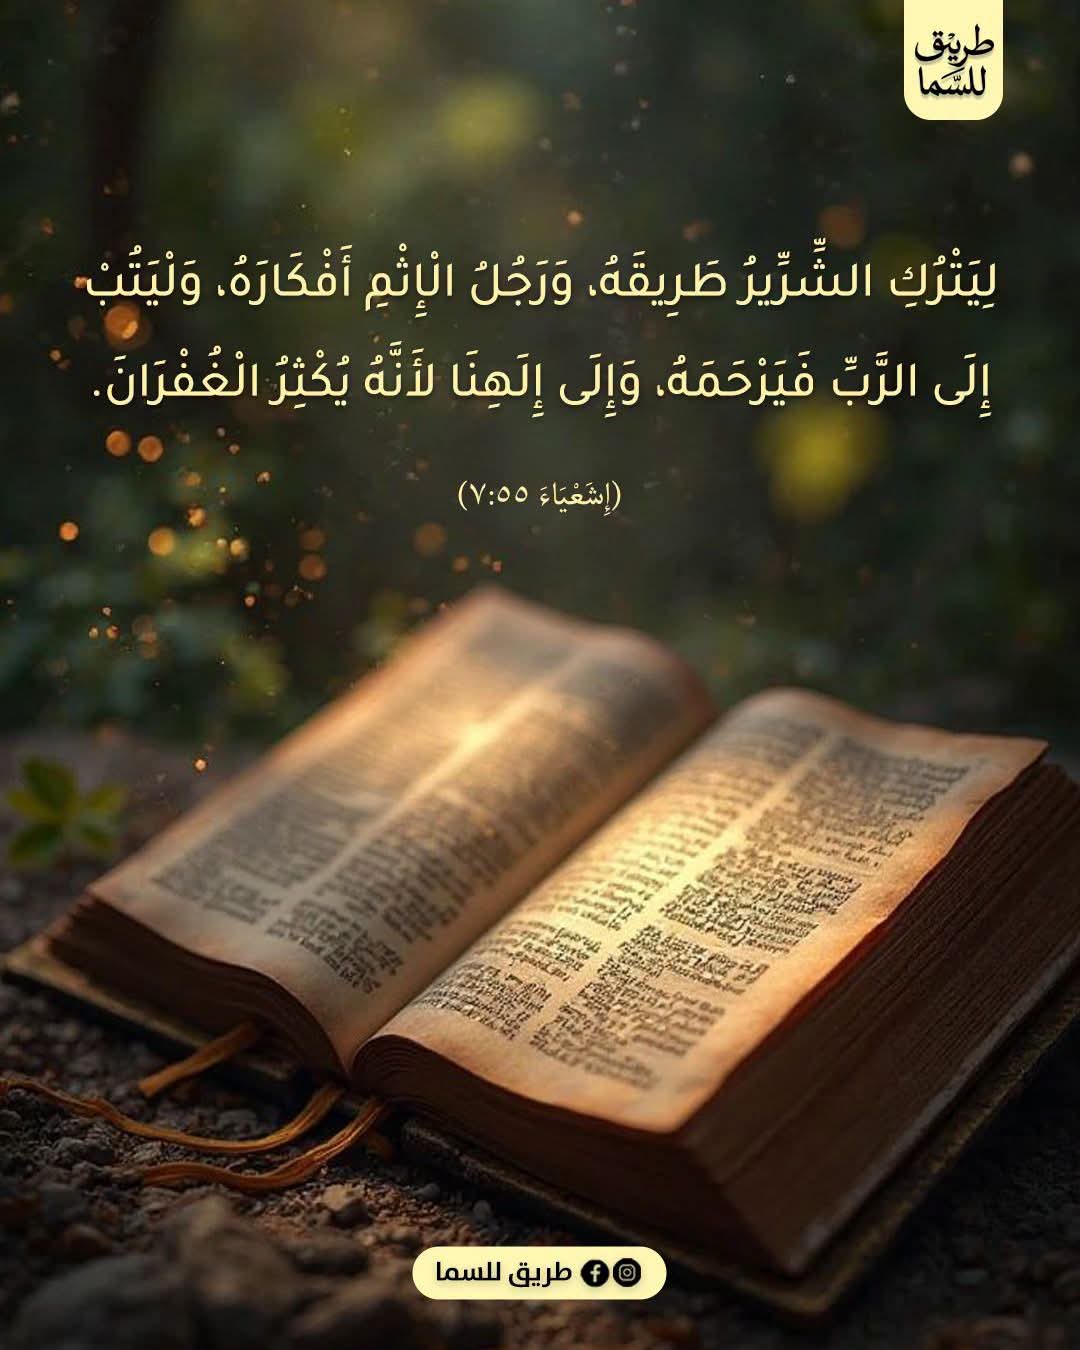 طريق
للسَّما
لِيَتْرُكِ الشِّرِّيرُ طَرِيقَهُ، وَرَجُلُ الْإِثْمِ أَفْكَارَهُ، وَلْيَتُبْ
إِلَى الرَّبِّ فَيَرْحَمَهُ، وَإِلَى إِلَهِنَا لأَنَّهُ يُكْثِرُ الْغُفْرَانَ.
(إِشَعْيَاءَ ٧:٥٥)
طريق للسما